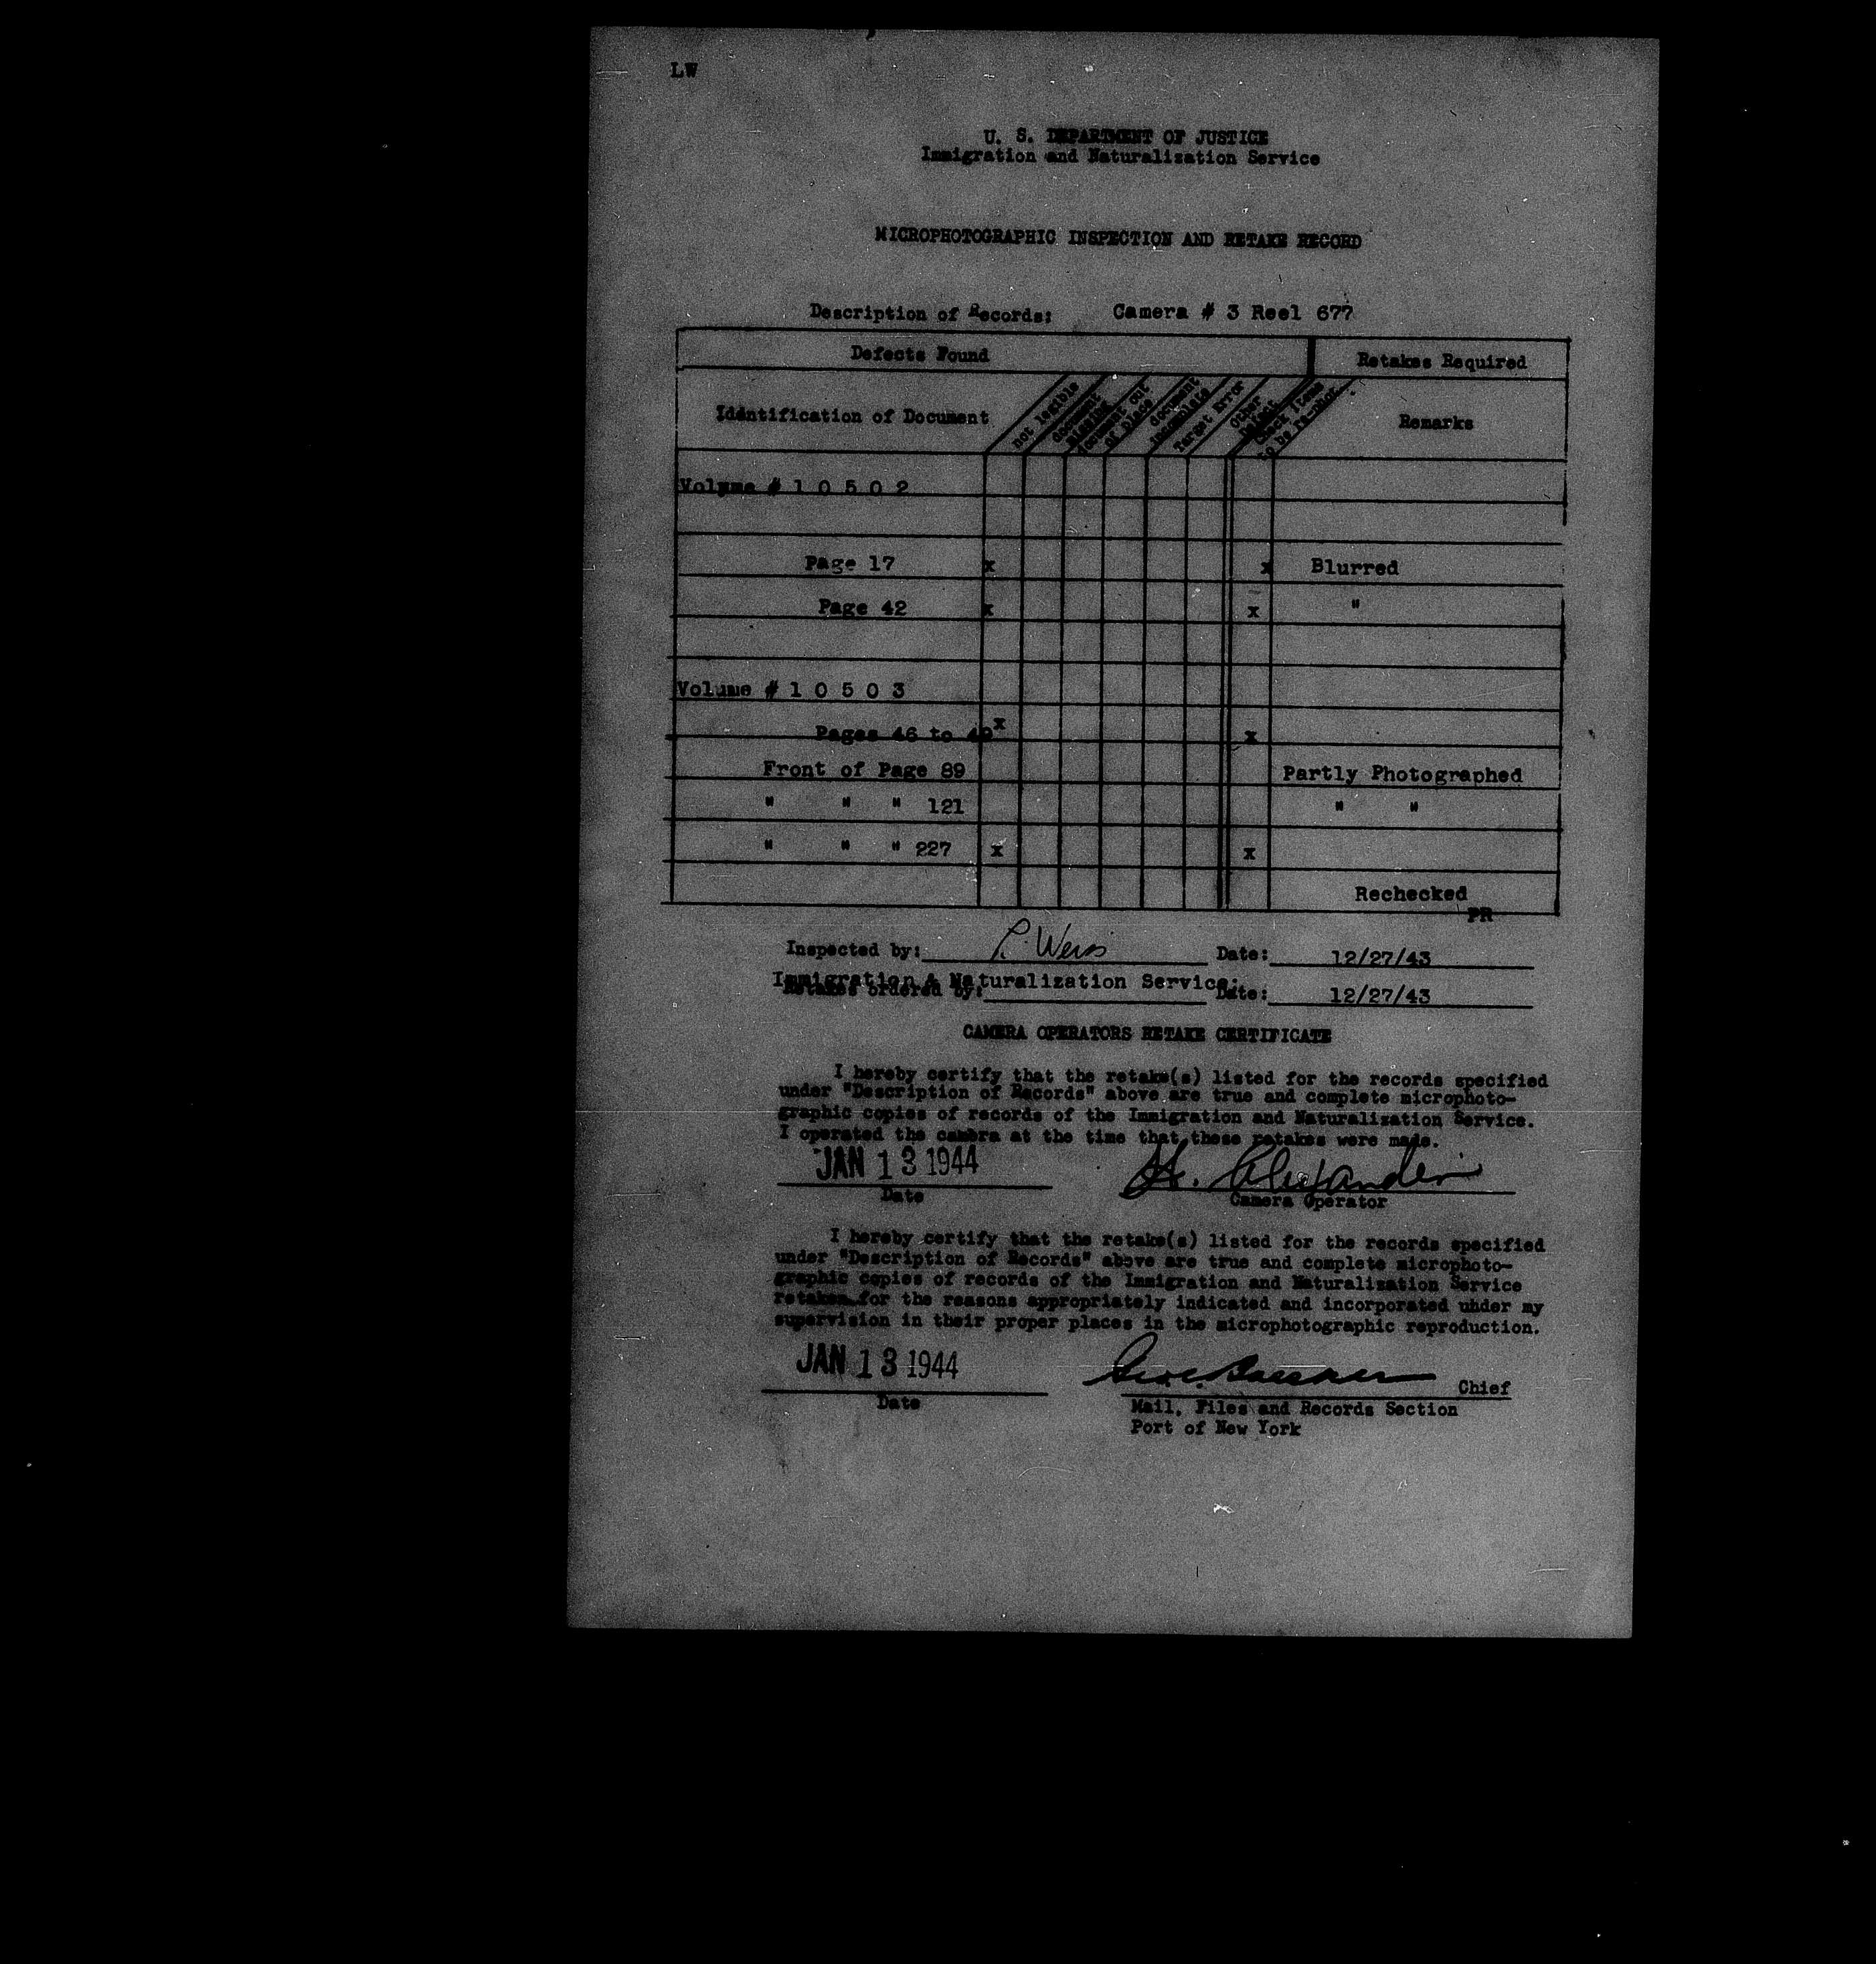 LW
U. S. DEPARTMENT OF JUSTICE
Immigration and Naturalization Service
MICROPHOTOGRAPHIC INSPECTION AND RETAKE RECORD
Description of Records: Camera # 3 Reel 677
Defects Found
Retakes Required
Identification of Document
not legible
document missing
document out of place
document incomplete
Target Error
Other Defect
Check items to be re-phot.
Remarks
Volume # 1 0 5 0 2
Page 17 x x Blurred
Page 42 x x "
Volume # 1 0 5 0 3
Pages 46 to 49 x x
Front of Page 89 Partly Photographed
" " " 121 " "
" " " 227 x x
Rechecked
PR
Inspected by: Date: 12/27/43
Immigration & Naturalization Service:
Retakes ordered by: Date: 12/27/43
CAMERA OPERATORS RETAKE CERTIFICATE
I hereby certify that the retake(s) listed for the records specified
under "Description of Records" above are true and complete microphoto-
graphic copies of records of the Immigration and Naturalization Service.
I operated the camera at the time that these retakes were made.
JAN 13 1944 H. Alexander
Date Camera Operator
I hereby certify that the retake(s) listed for the records specified
under "Description of Records" above are true and complete microphoto-
graphic copies of records of the Immigration and Naturalization Service
retaken for the reasons appropriately indicated and incorporated under my
supervision in their proper places in the microphotographic reproduction.
JAN 13 1944 Chief
Date
Mail, Files and Records Section
Port of New York